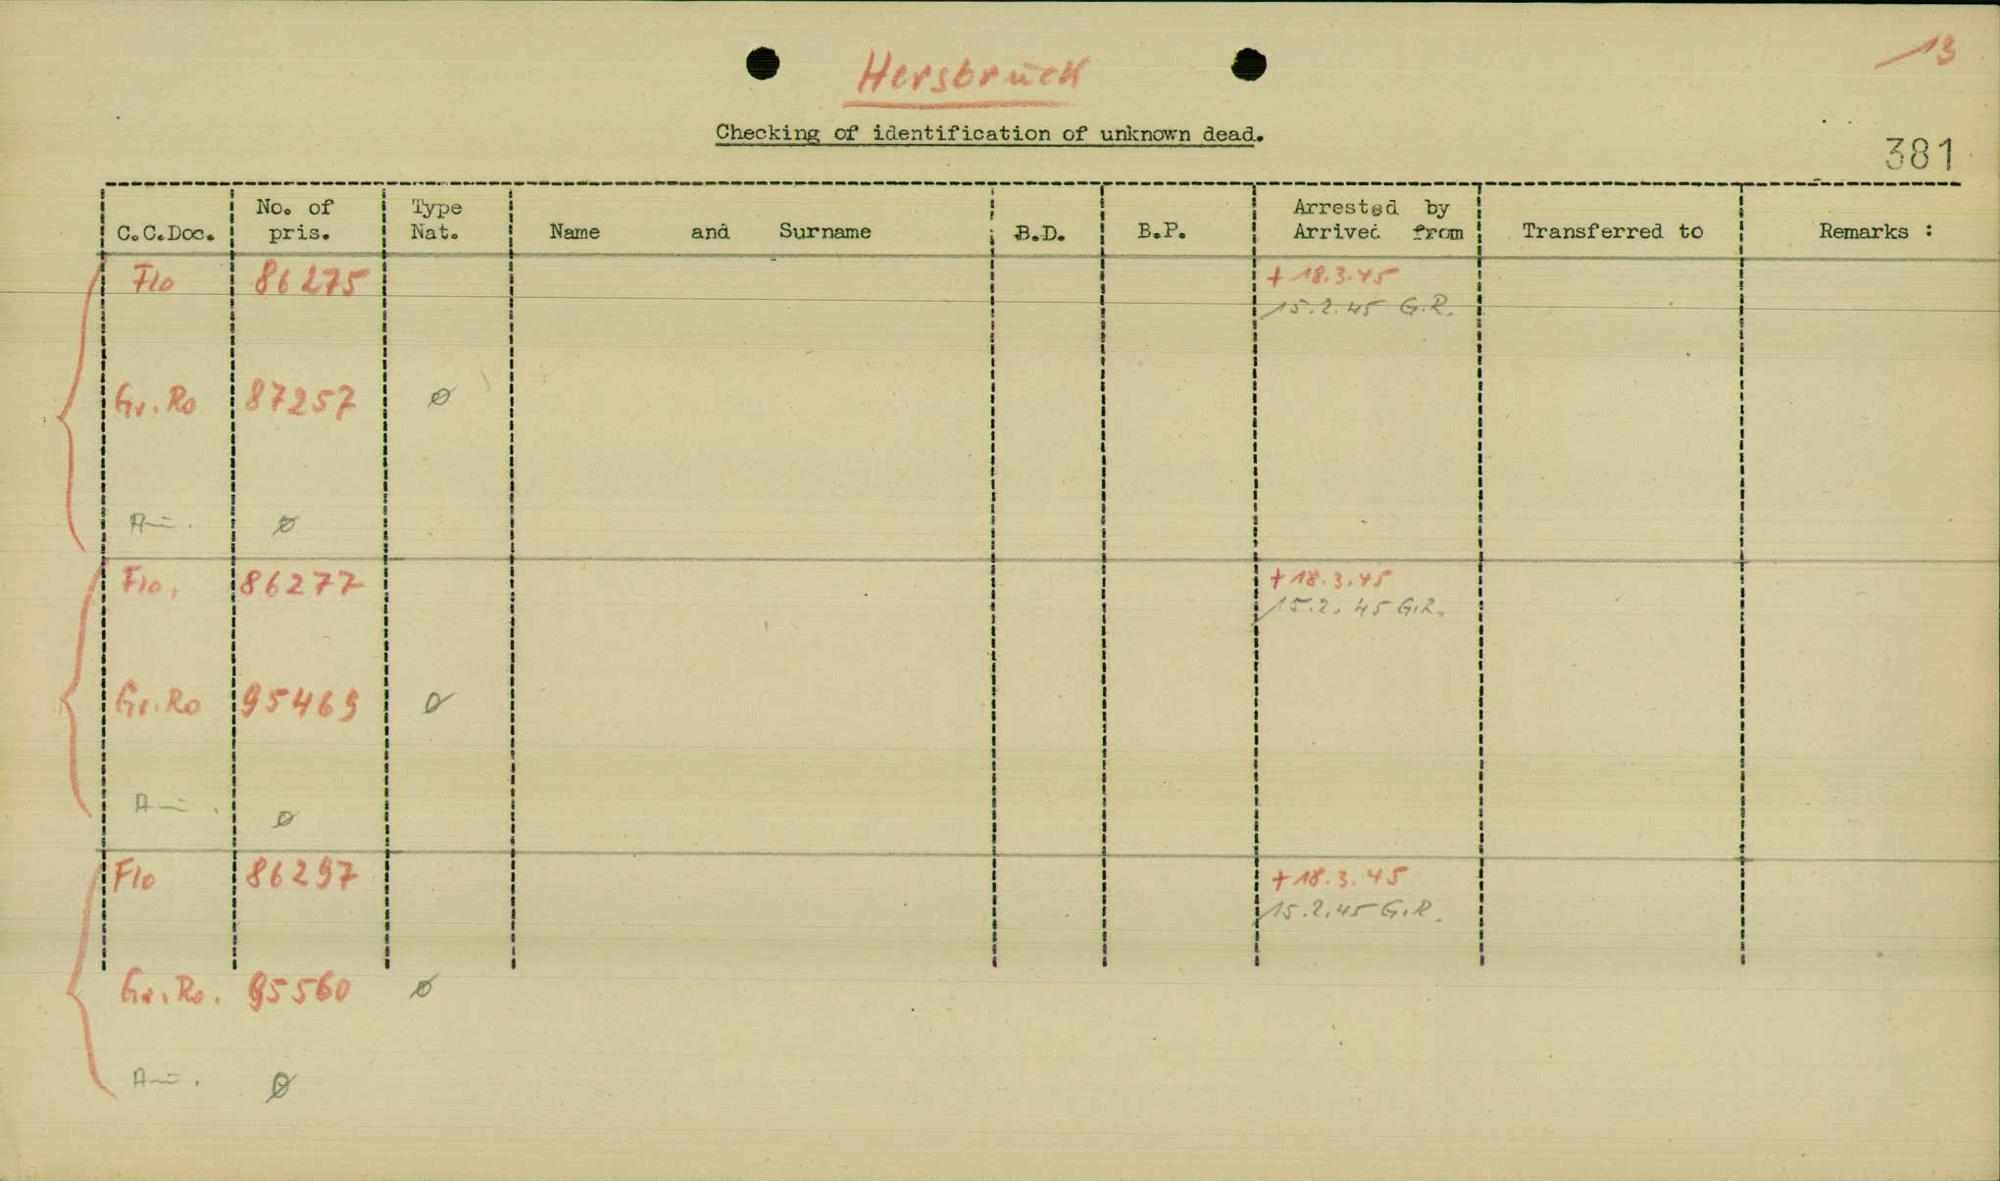 13
Hersbruck
Checking of identification of unknown dead.
381
C.C.Doc. No. of pris. Type Nat. Name and Surname B.D. B.P. Arrested by Arrived from Transferred to Remarks :
Flo 86275 + 18.3.45
15.2.45 G.R.
Gr.Ro 87257 ø
ø
Flo. 86277 + 18.3.45
15.2.45 G.R.
Gr.Ro 95469 ø
ø
Flo 86297 + 18.3.45
15.2.45 G.R.
Gr.Ro. 95560 ø
ø